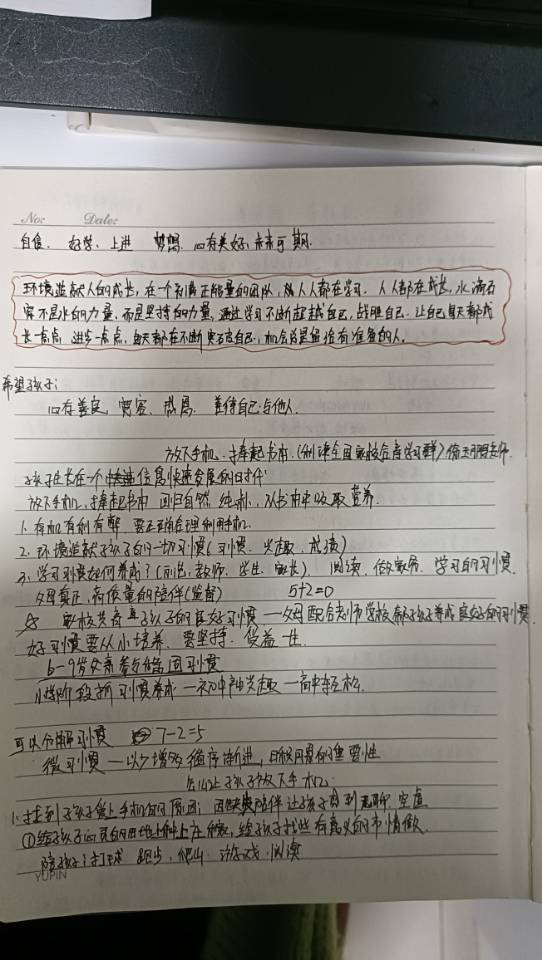 No: Date:
自信、好学、上进 梦想 心有美好,未来可期.
环境造就人的成长,在一个积满正能量的团队,做人人都在学习.人人都在成长,水滴石
穿不是水的力量,而是坚持的力量,通过学习不断超越自己,战胜自己.让自己每天都成
长一点点,进步一点点,每天都在不断完善自己,机会总是留给有准备的人.
希望孩子:
心有善良,宽容、感恩、善待自己与他人.
放下手机、捧起书本.(倾读全国家校合育学习群)
孩子生长在一个信息快速发展的时代
放下手机,捧起书本 回归自然 纯朴,从书本中吸取营养.
1.有机有利有弊 要正确合理利用手机.
2.环境造就孩子的一切习惯(习惯、兴趣、成绩)
3.学习习惯如何养成?(别说,教师、学生、家长) 阅读、做家务、学习的习惯
父母真正,高质量的陪伴(监督) 5+2=0
☆ 家校共育 孩子的良好习惯—父母配合老师学校 孩子养成良好的习惯
好习惯要从小培养、要坚持、
6-9岁 习惯
小学阶段抓习惯养成—初中兴趣—高中轻松.
可以分解习惯 7-2=5
微习惯—以少增多 循序渐进,日积月累的重要性
怎么让孩子放下手机.
1.找到孩子爱上手机的原因: 因缺失陪伴让孩子感到无聊 空虚
①给孩子 给孩子找些有意义的事情做.
陪孩子打球 跑步、爬山 游戏、阅读
YUPIN